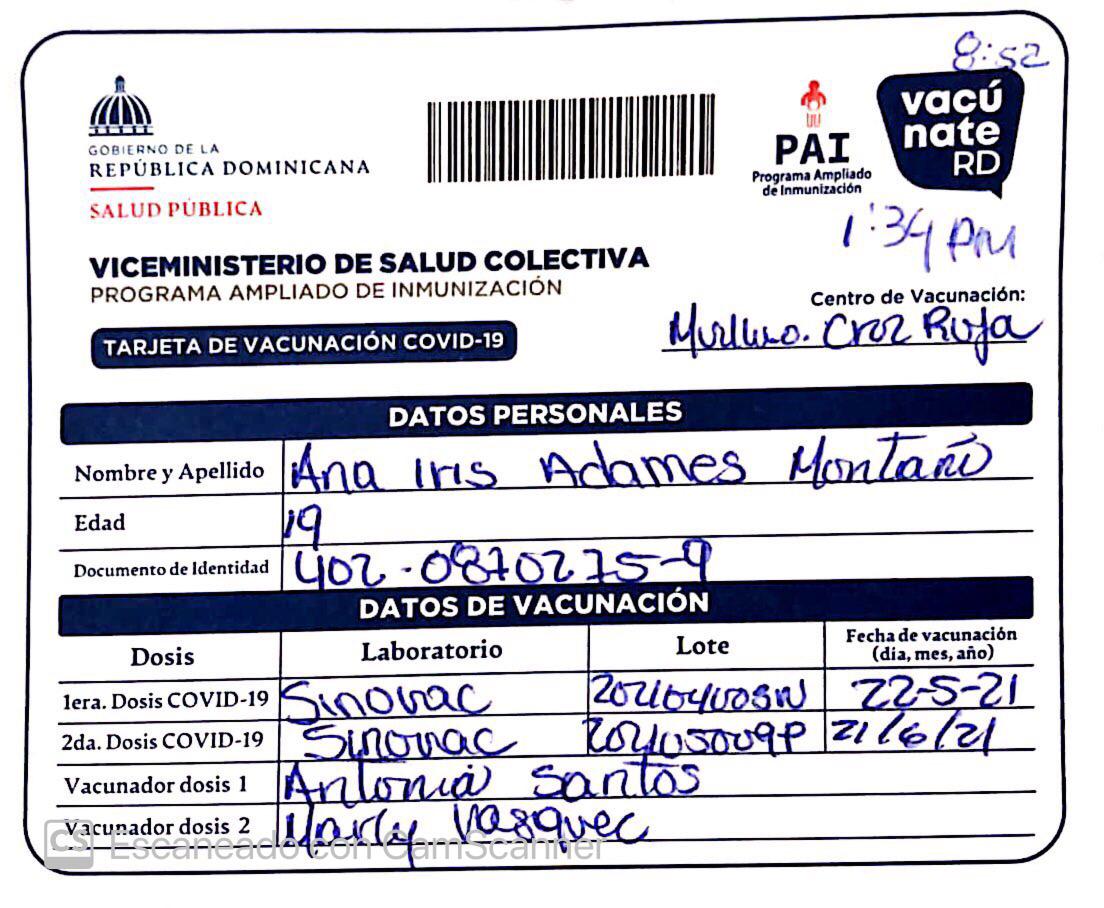 8:52
GOBIERNO DE LA
REPÚBLICA DOMINICANA
SALUD PÚBLICA
PAI
Programa Ampliado
de Inmunización
vacú
nate
RD
1:34 PM
VICEMINISTERIO DE SALUD COLECTIVA
PROGRAMA AMPLIADO DE INMUNIZACIÓN
TARJETA DE VACUNACIÓN COVID-19
Centro de Vacunación:
Croz Roja
DATOS PERSONALES
Nombre y Apellido Ana Iris Adames Montaño
Edad 19
Documento de Identidad 402-0870275-9
DATOS DE VACUNACIÓN
Dosis Laboratorio Lote Fecha de vacunación
(día, mes, año)
1era. Dosis COVID-19 Sinovac 22-5-21
2da. Dosis COVID-19 Sinovac 21/6/21
Vacunador dosis 1 Antonia Santos
Vacunador dosis 2 Vasquec
CS Escaneado con CamScanner